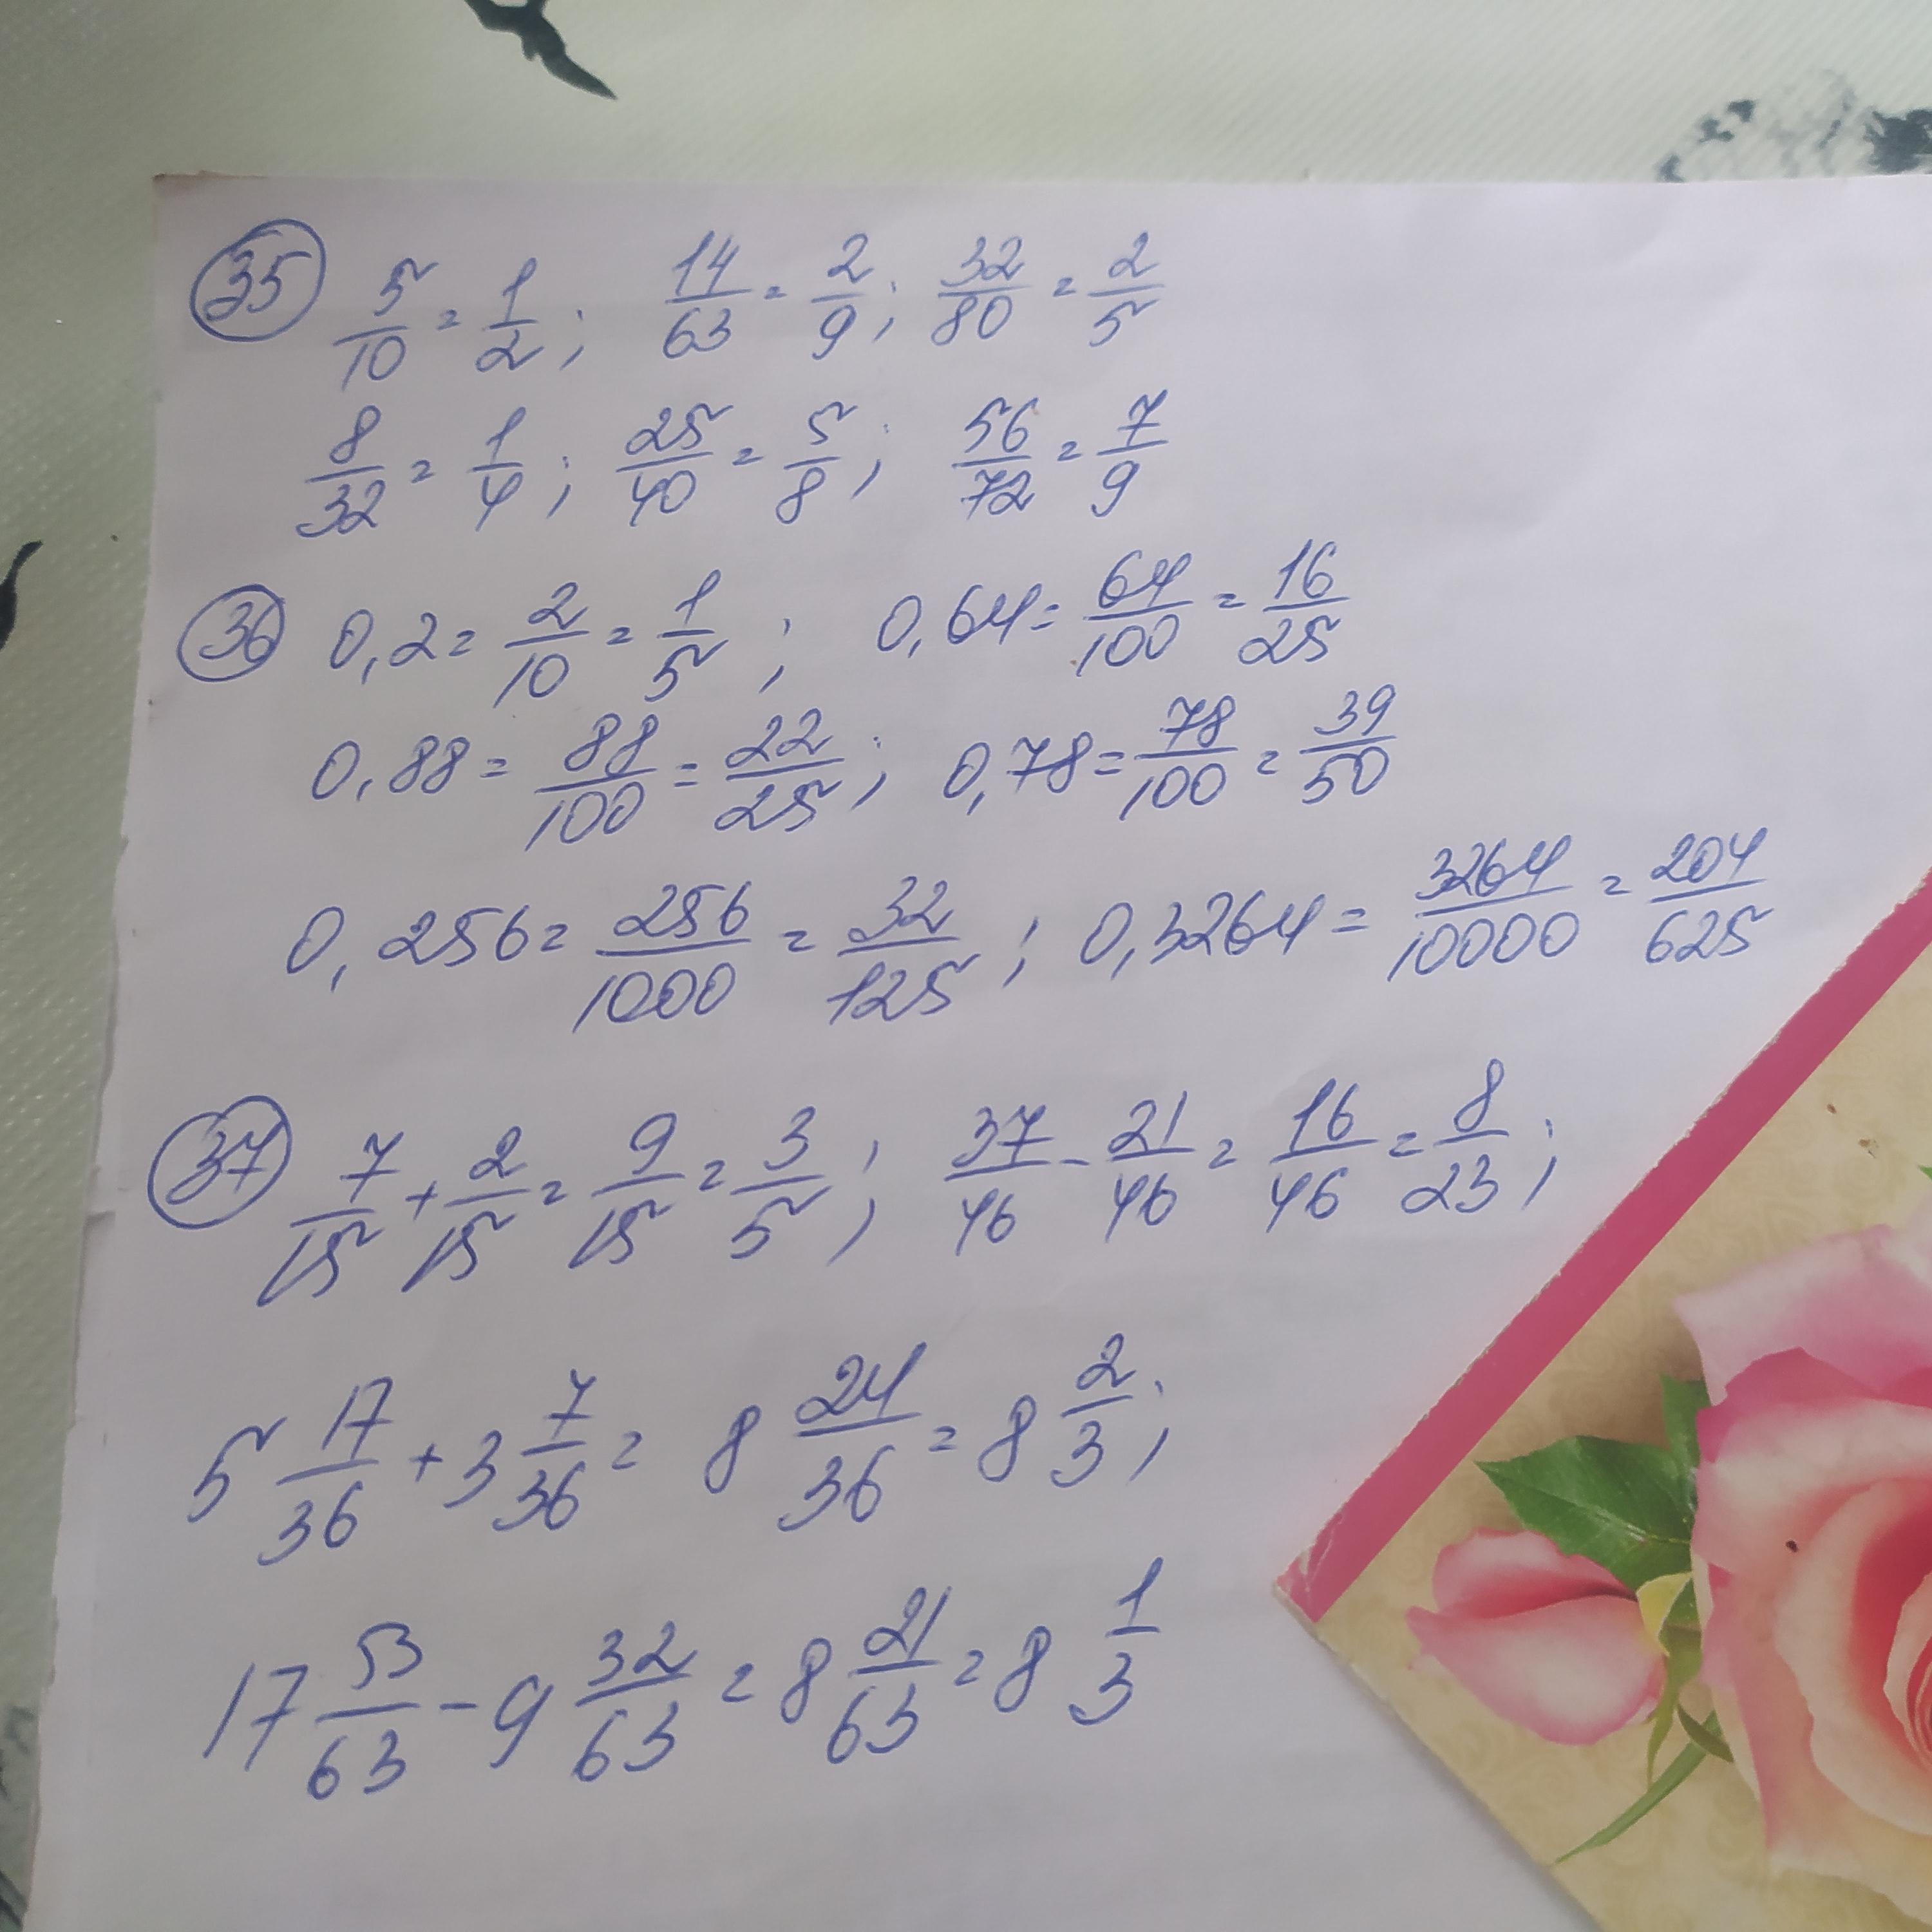 35 5/10 = 1/2; 14/63 = 2/9; 32/80 = 2/5
8/32 = 1/4; 25/40 = 5/8; 56/72 = 7/9
36 0,2 = 2/10 = 1/5; 0,64 = 64/100 = 16/25
0,88 = 88/100 = 22/25; 0,78 = 78/100 = 39/50
0,256 = 256/1000 = 32/125; 0,3264 = 3264/10000 = 204/625
37 7/15 + 2/15 = 9/15 = 3/5; 37/46 - 21/46 = 16/46 = 8/23;
5 17/36 + 3 7/36 = 8 24/36 = 8 2/3;
17 53/63 - 9 32/63 = 8 21/63 = 8 1/3